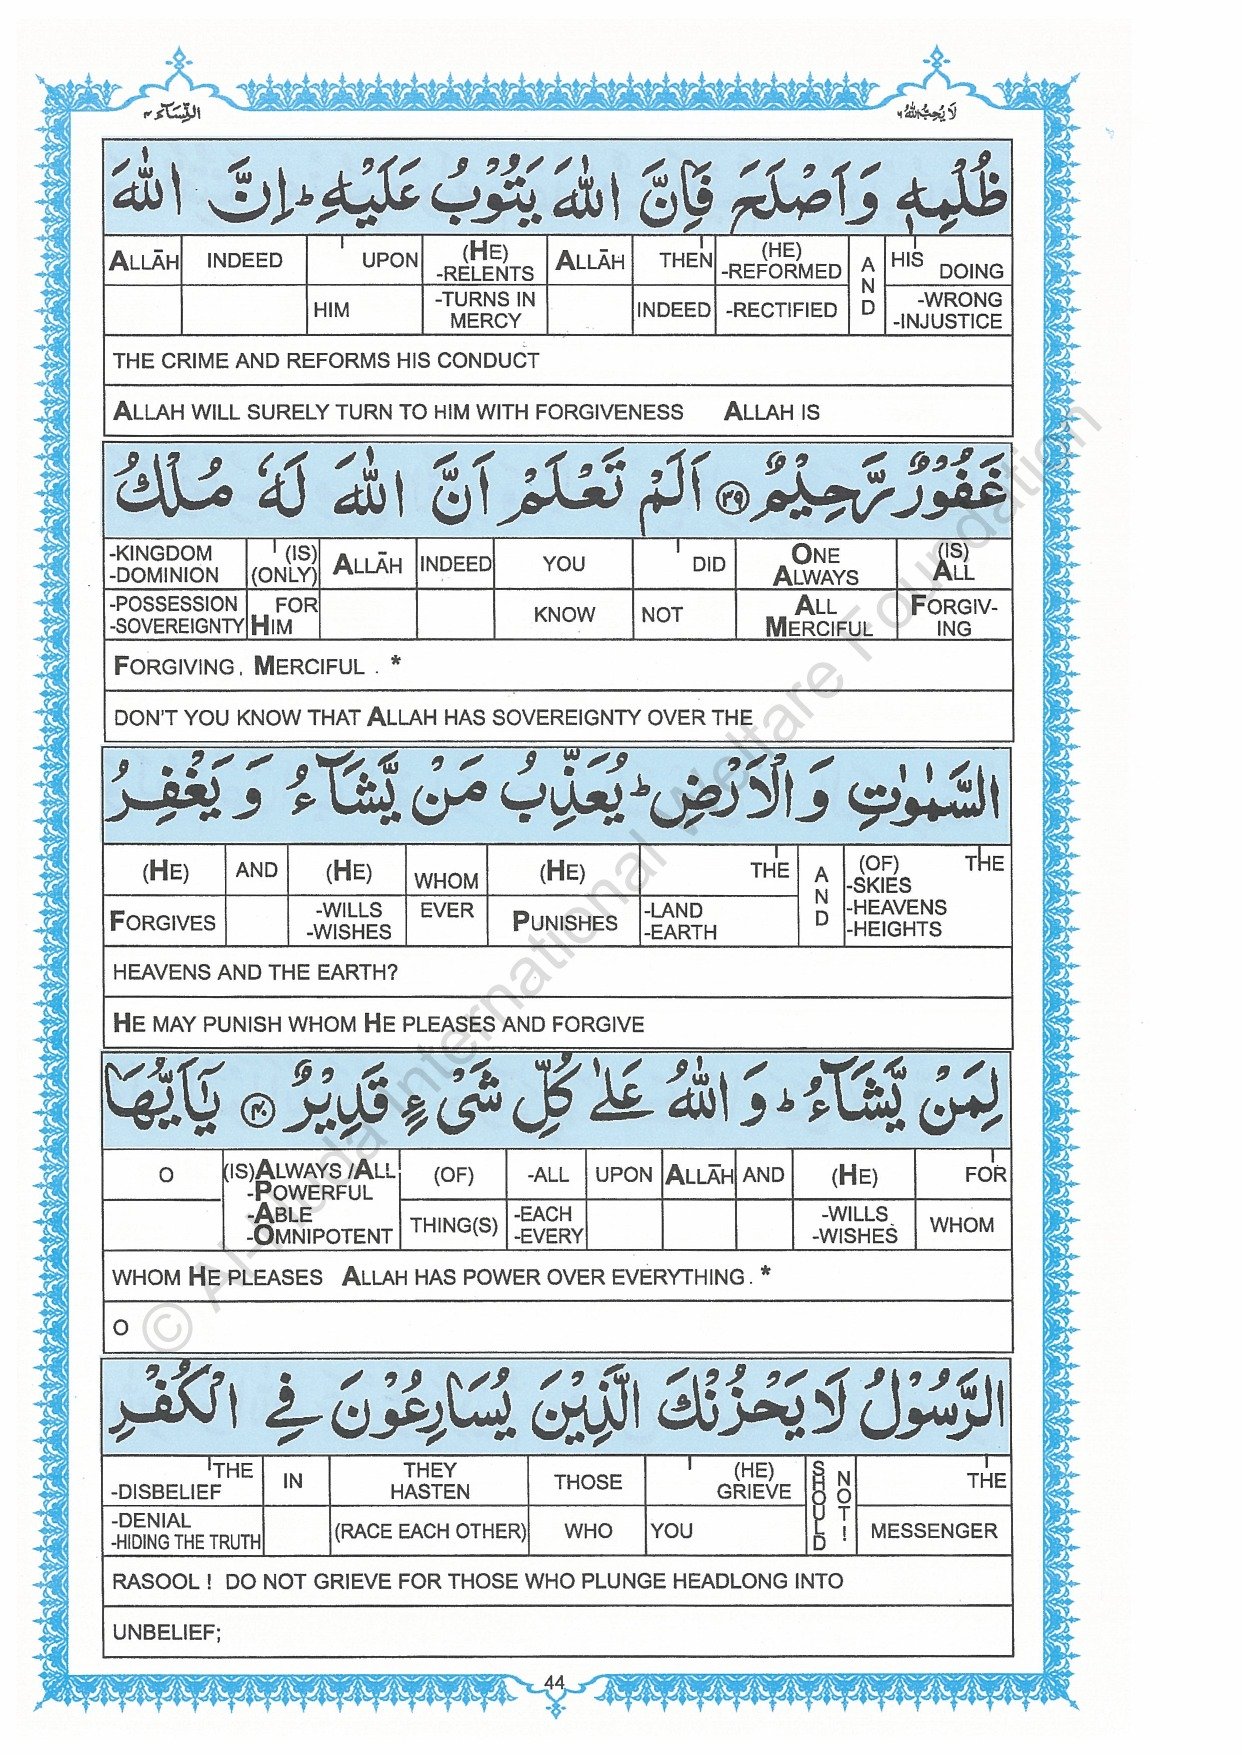 النِّسَآء ٤
لَا يُحِبُّ اللهُ ٦
ظُلْمِهٖ وَاَصْلَحَ فَاِنَّ اللّٰهَ يَتُوْبُ عَلَيْهِ ؕ اِنَّ اللّٰهَ
ALLĀH INDEED UPON (HE) -RELENTS ALLĀH THEN (HE) -REFORMED AND HIS DOING
HIM -TURNS IN MERCY INDEED -RECTIFIED -WRONG -INJUSTICE
THE CRIME AND REFORMS HIS CONDUCT
ALLAH WILL SURELY TURN TO HIM WITH FORGIVENESS ALLAH IS
غَفُوْرٌ رَّحِيْمٌ ۝٣٩ اَلَمْ تَعْلَمْ اَنَّ اللّٰهَ لَهٗ مُلْكُ
-KINGDOM -DOMINION (IS) (ONLY) ALLĀH INDEED YOU DID ONE ALWAYS (IS) ALL
-POSSESSION -SOVEREIGNTY FOR HIM KNOW NOT ALL MERCIFUL FORGIV-ING
FORGIVING, MERCIFUL . *
DON'T YOU KNOW THAT ALLAH HAS SOVEREIGNTY OVER THE
السَّمٰوٰتِ وَالْاَرْضِ ؕ يُعَذِّبُ مَنْ يَّشَآءُ وَ يَغْفِرُ
(HE) AND (HE) WHOM (HE) THE AND (OF) THE -SKIES
FORGIVES -WILLS -WISHES EVER PUNISHES -LAND -EARTH -HEAVENS -HEIGHTS
HEAVENS AND THE EARTH?
HE MAY PUNISH WHOM HE PLEASES AND FORGIVE
لِمَنْ يَّشَآءُ ؕ وَ اللّٰهُ عَلٰى كُلِّ شَىْءٍ قَدِيْرٌ ۝٤٠ يٰۤاَيُّهَا
O (IS)ALWAYS /ALL -POWERFUL (OF) -ALL UPON ALLĀH AND (HE) FOR
-ABLE -OMNIPOTENT THING(S) -EACH -EVERY -WILLS -WISHES WHOM
WHOM HE PLEASES ALLAH HAS POWER OVER EVERYTHING. *
O
الرَّسُوْلُ لَا يَحْزُنْكَ الَّذِيْنَ يُسَارِعُوْنَ فِى الْكُفْرِ
THE -DISBELIEF IN THEY HASTEN THOSE (HE) GRIEVE SHOULD NOT! THE
-DENIAL -HIDING THE TRUTH (RACE EACH OTHER) WHO YOU MESSENGER
RASOOL ! DO NOT GRIEVE FOR THOSE WHO PLUNGE HEADLONG INTO
UNBELIEF;
44
© Al-Huda International Welfare Foundation